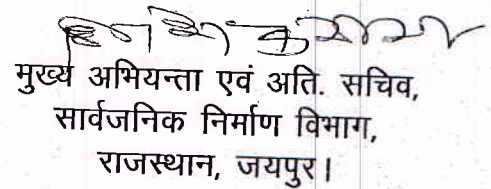 मुख्य अभियन्ता एवं अति. सचिव,
सार्वजनिक निर्माण विभाग,
राजस्थान, जयपुर।